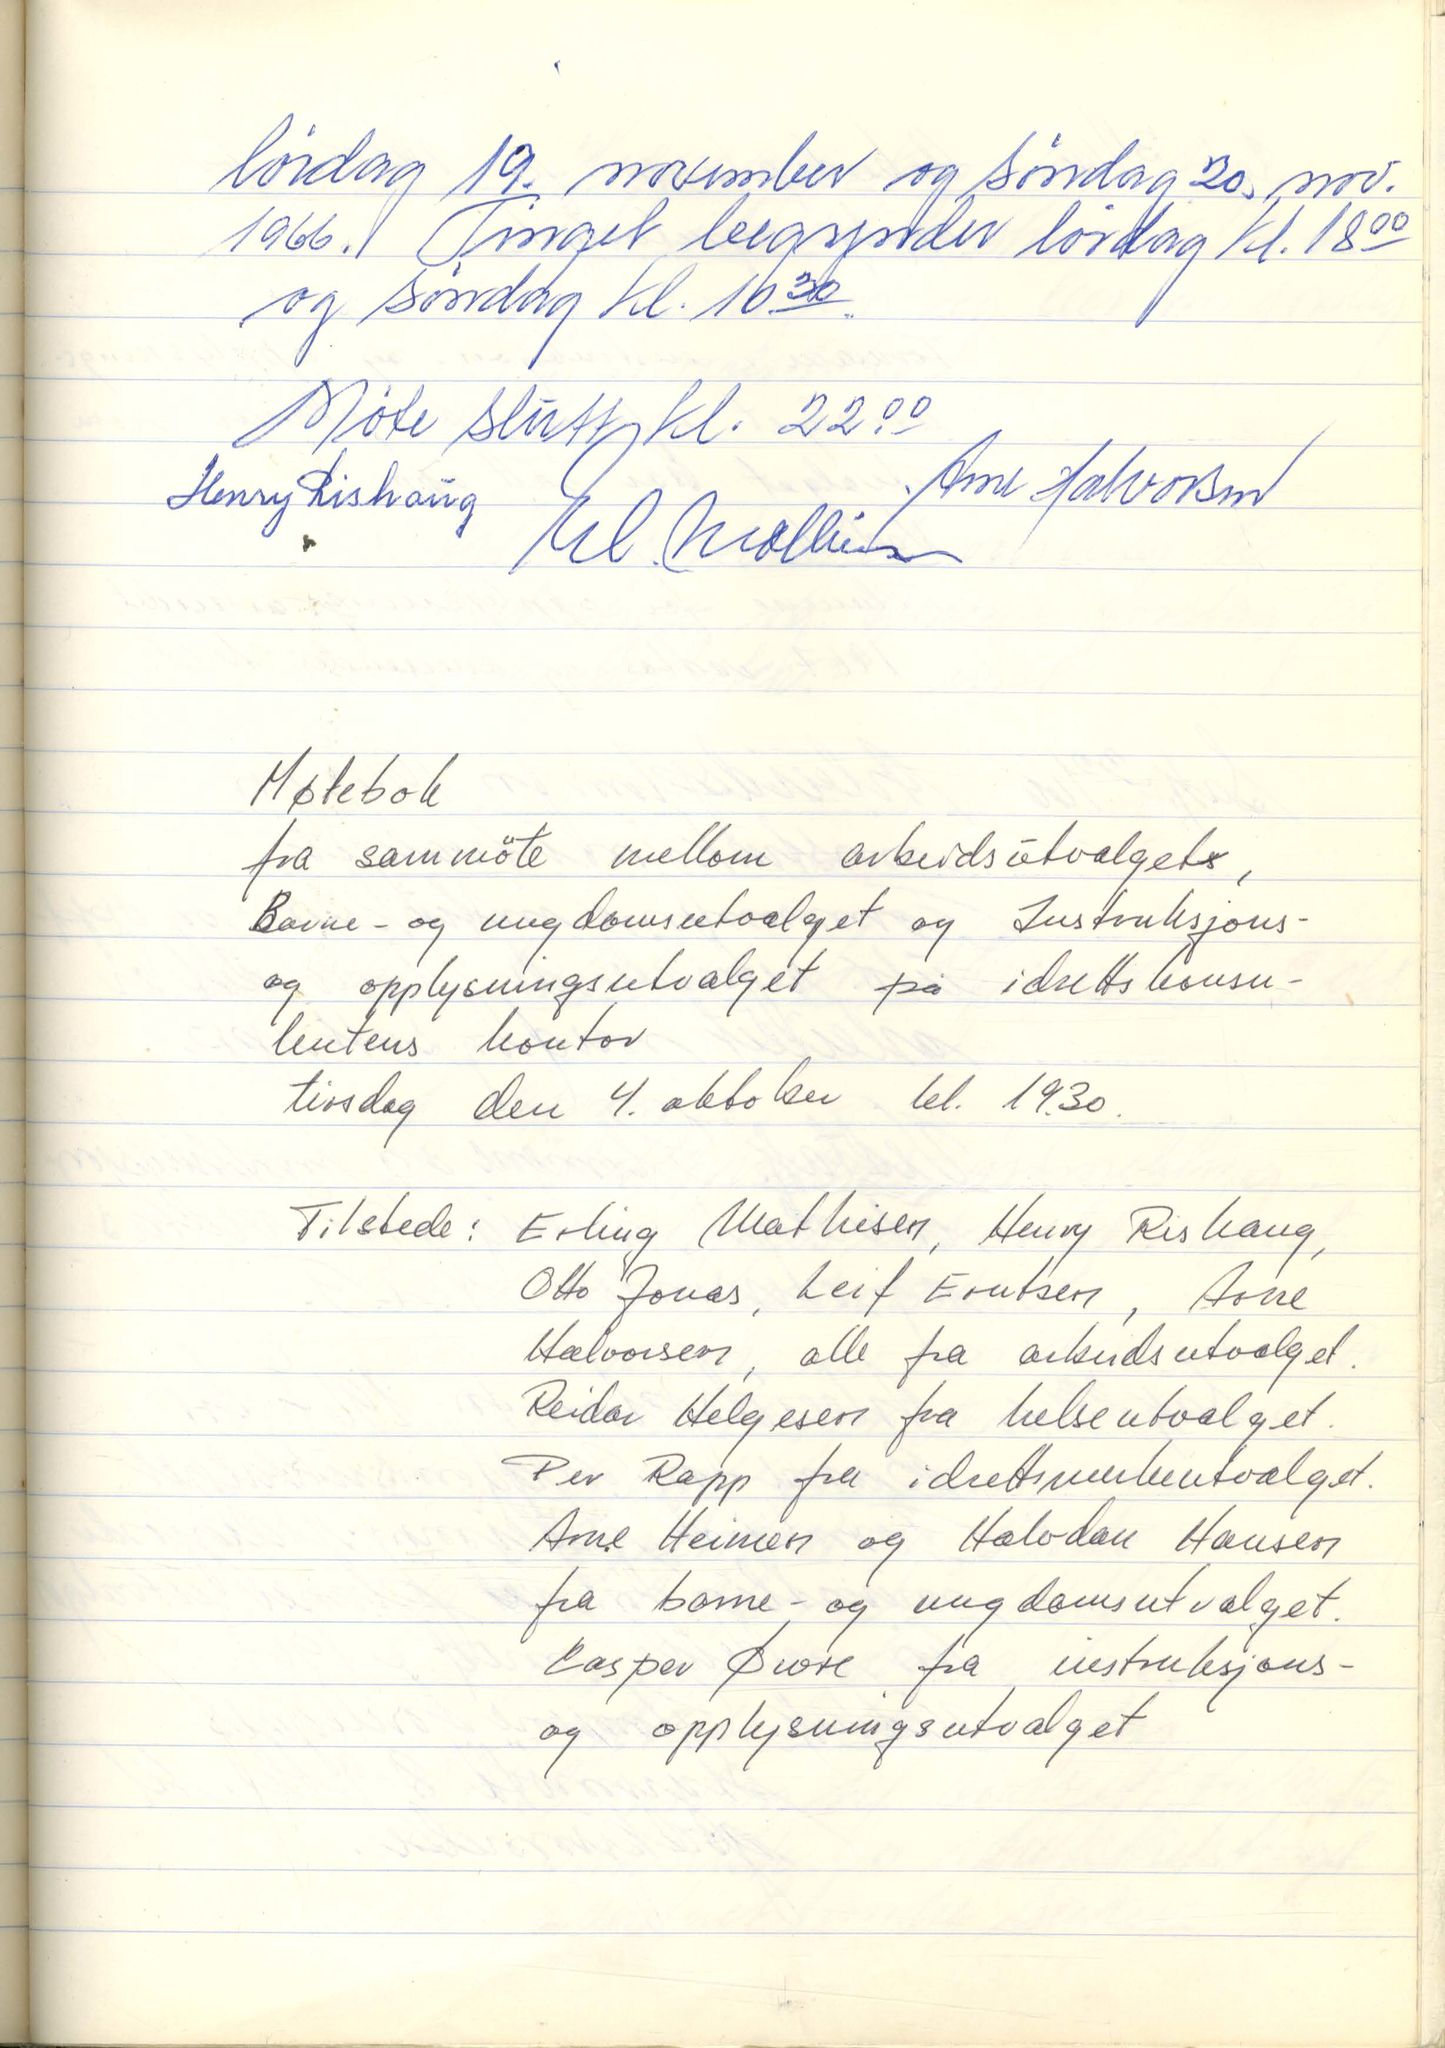 lördag 19. november og söndag 20. nov.
1966. Tinget begynder lördag kl. 18 00
og söndag kl. 10 30.
Möte slutt kl. 22 00
Henry Rishaug Arne Halvorsen
Møtebok
fra sammöte mellom arbeidsutvalget,
Barne- og ungdomsutvalget og Instruksjons-
og opplysningsutvalget på idrettskonsu-
lentens kontor
tirsdag den 4. oktober kl. 19.30.
Tilstede: Erling Mathisen, Henry Rishaug,
Otto Jonas, Leif Erntsen, Arne
Halvorsen, alle fra arbeidsutvalget.
Reidar Helgesen fra helseutvalget.
Per Rapp fra idrettsmerkeutvalget.
Arne Heimen og Halvdan Hansen
fra barne- og ungdomsutvalget.
Casper fra instruksjons-
og opplysningsutvalget